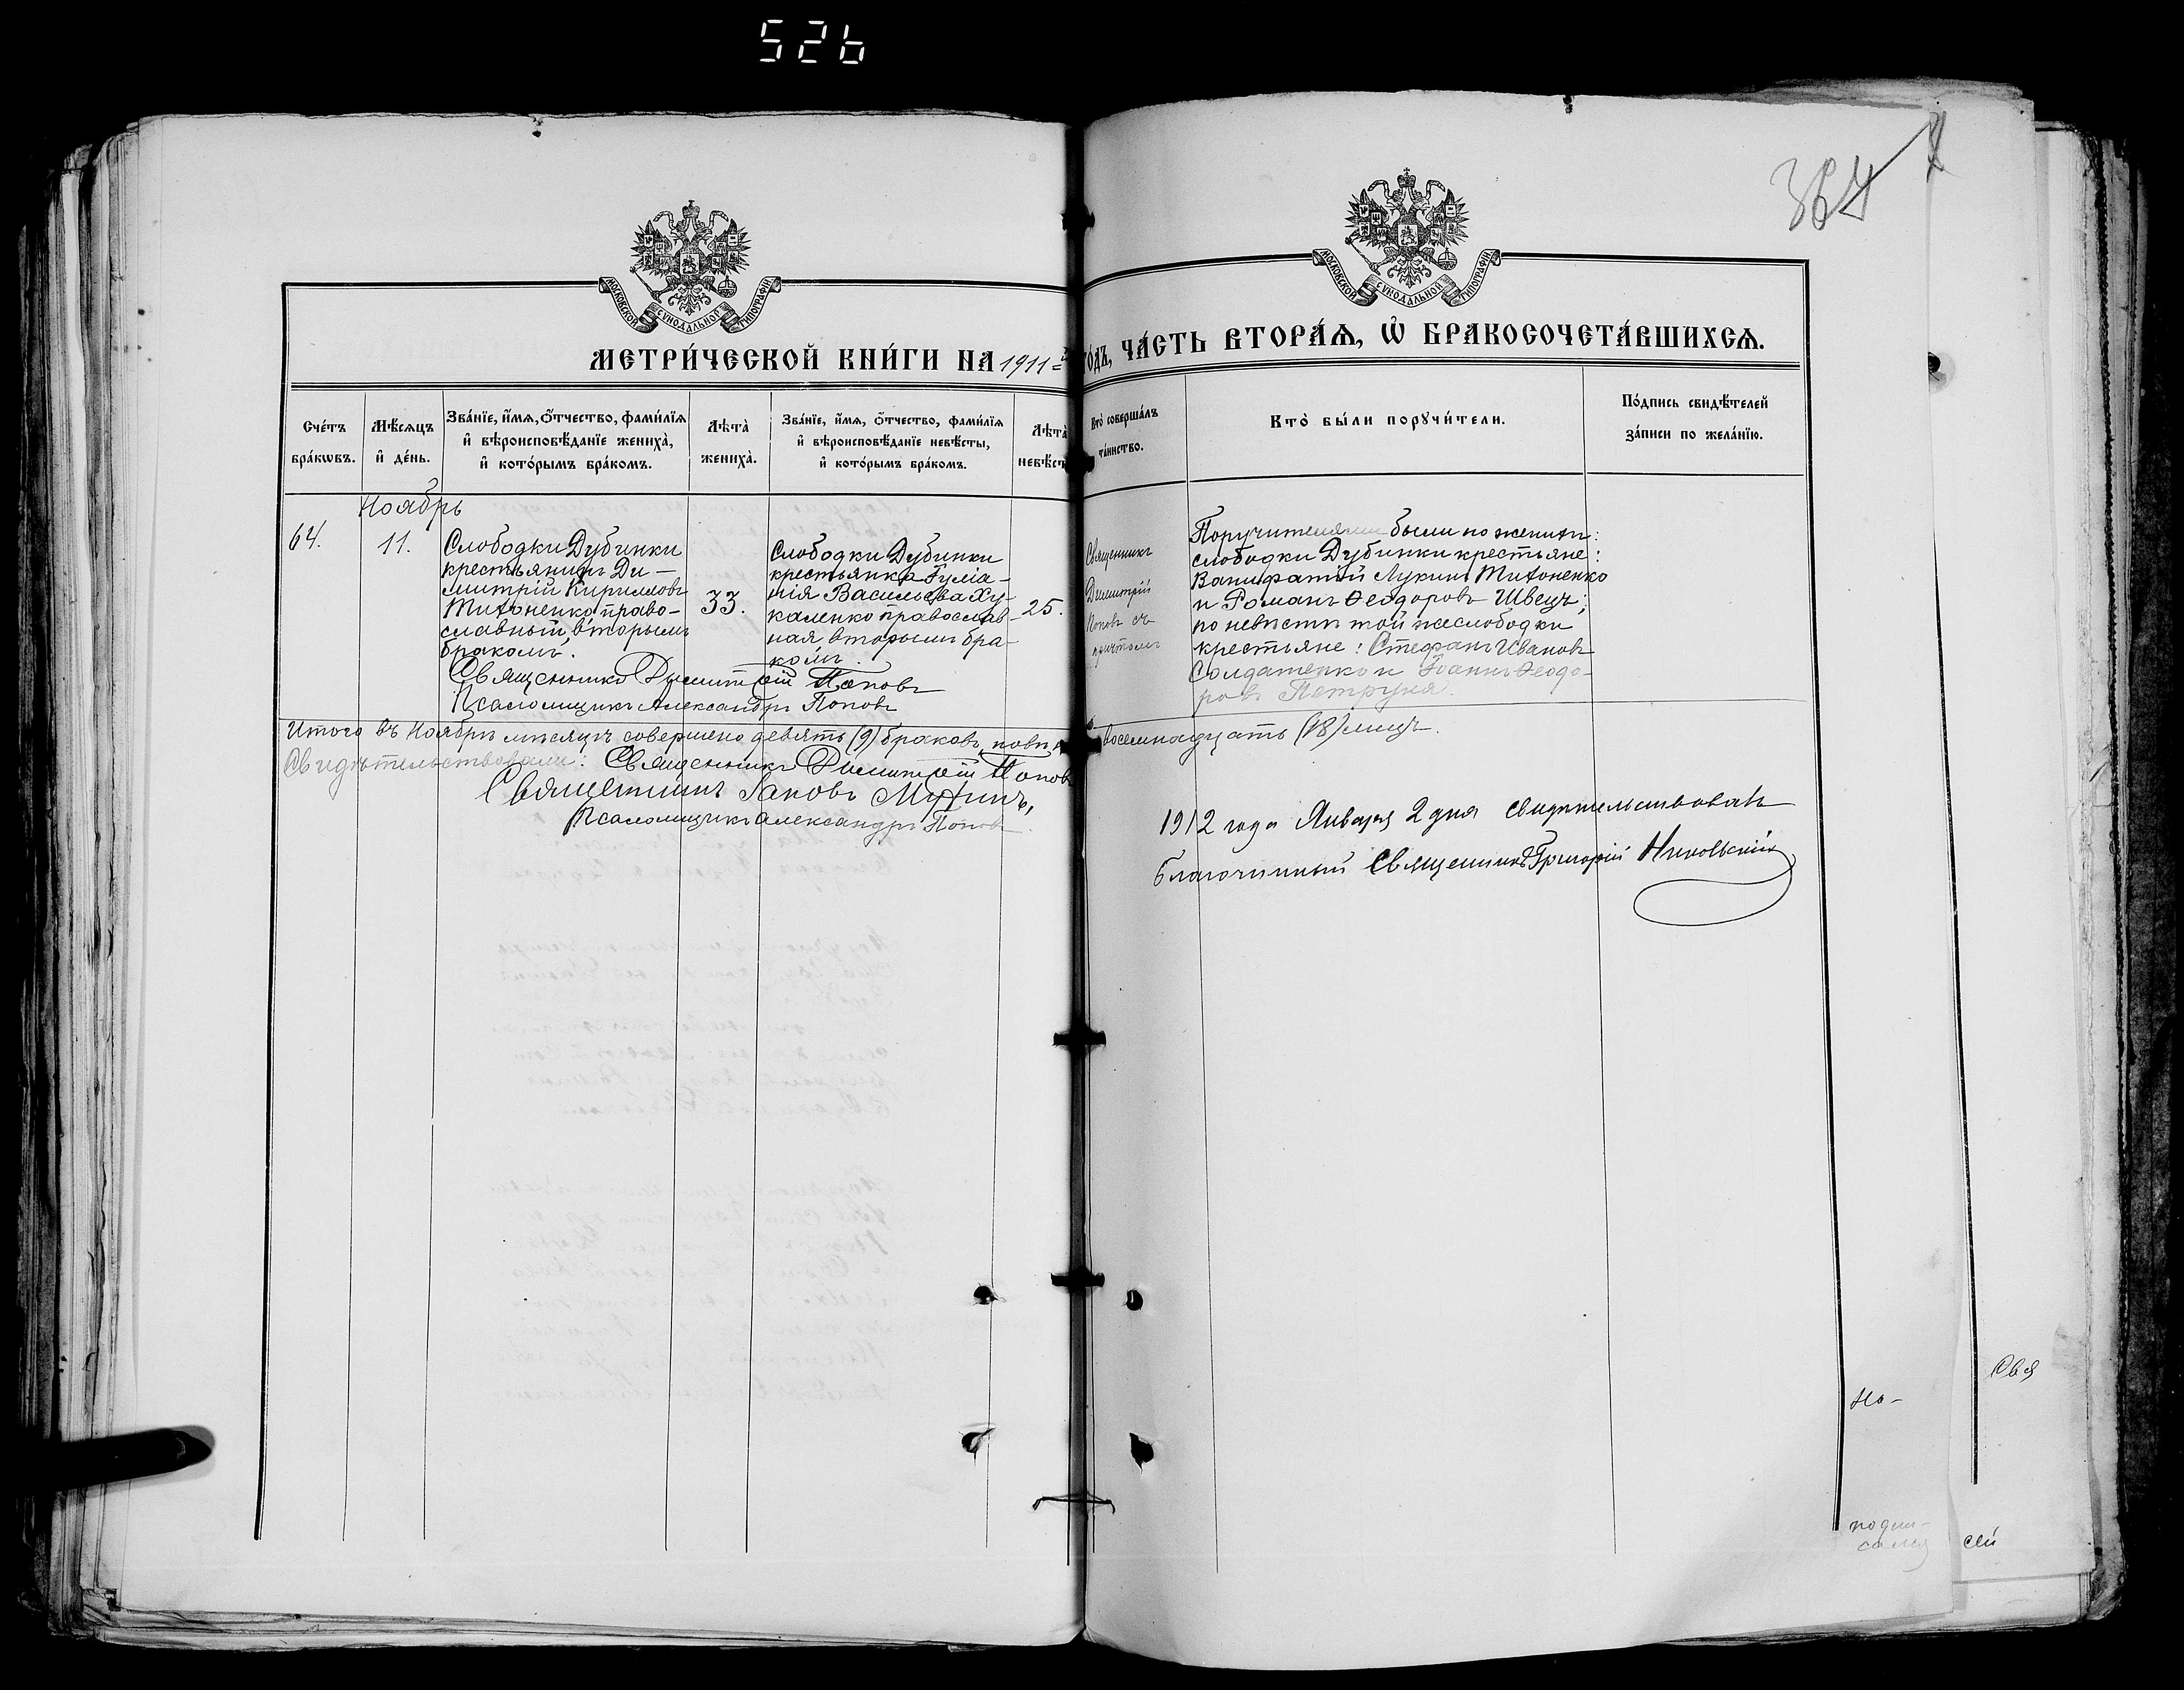 526
364
МОСКОВСКОЙ СУНОДАЛЬНОЙ ТИПОГРАФІИ
МОСКОВСКОЙ СУНОДАЛЬНОЙ ТИПОГРАФІИ
МЕТРИ́ЧЕСКОЙ КНИ́ГИ НА 1911 = й
ГО́ДЪ, ЧА́СТЬ ВТОРА́Ѧ, Ѽ БРАКОСОЧЕТА́ВШИХСѦ.
Сче́тъ
бра́кѡвъ.
Мѣ́сяцъ
и҆ де́нь.
Зва́нїе, и҆́мѧ, ѻ҆́тчество, фами́лїѧ
и҆ вѣроисповѣ́данїе жениха̀,
и҆ кото́рымъ бра́комъ.
Лѣта̀
жениха̀.
Зва́нїе, и҆́мѧ, ѻ҆́тчество, фами́лїѧ
и҆ вѣроисповѣ́данїе невѣ́сты,
и҆ кото́рымъ бра́комъ.
Лѣта̀
невѣ́ст
Кто̀ соверша́лъ
та́инство.
Кто̀ бы́ли порꙋчи́тели.
По́дпись свидѣ́телей
за́писи по жела́нїю.
Ноябрь
64.
11.
Слободки Дубинки
крестьянинъ Ди-
митрій Кирилловъ
Тихоненко право-
славный, вторымъ
бракомъ.
33.
Слободки Дубинки
крестьянка Гуліа-
нія Васильева Ху-
каленко православ-
ная вторымъ бра-
комъ.
25.
Священникъ
Димитрій
Поповъ съ
причтомъ
Поручителями были по женихѣ:
слободки Дубинки крестьяне:
Вонифатій Лукинъ Тихоненко
и Романъ Ѳеодоровъ Швецъ;
по невѣстѣ той же слободки
крестьяне: Стефанъ Ивановъ
Солдатенко и Іоаннъ Ѳеодо-
ровъ Петруня.
Священникъ Димитрій Поповъ
Псаломщикъ Александръ Поповъ
Итого въ Ноябрѣ мѣсяцѣ совершено девять (9) браковъ, повѣн
восемнадцать (18) лицъ.
Свидѣтельствовали: Священникъ Димитрій Поповъ
Священникъ Іаковъ Мухинъ,
Псаломщикъ Александръ Поповъ.
1912 года Января 2 дня свидѣтельствовалъ
Благочинный Священникъ Григорій Никольскій
Свя
но-
подпи-
сался
сей